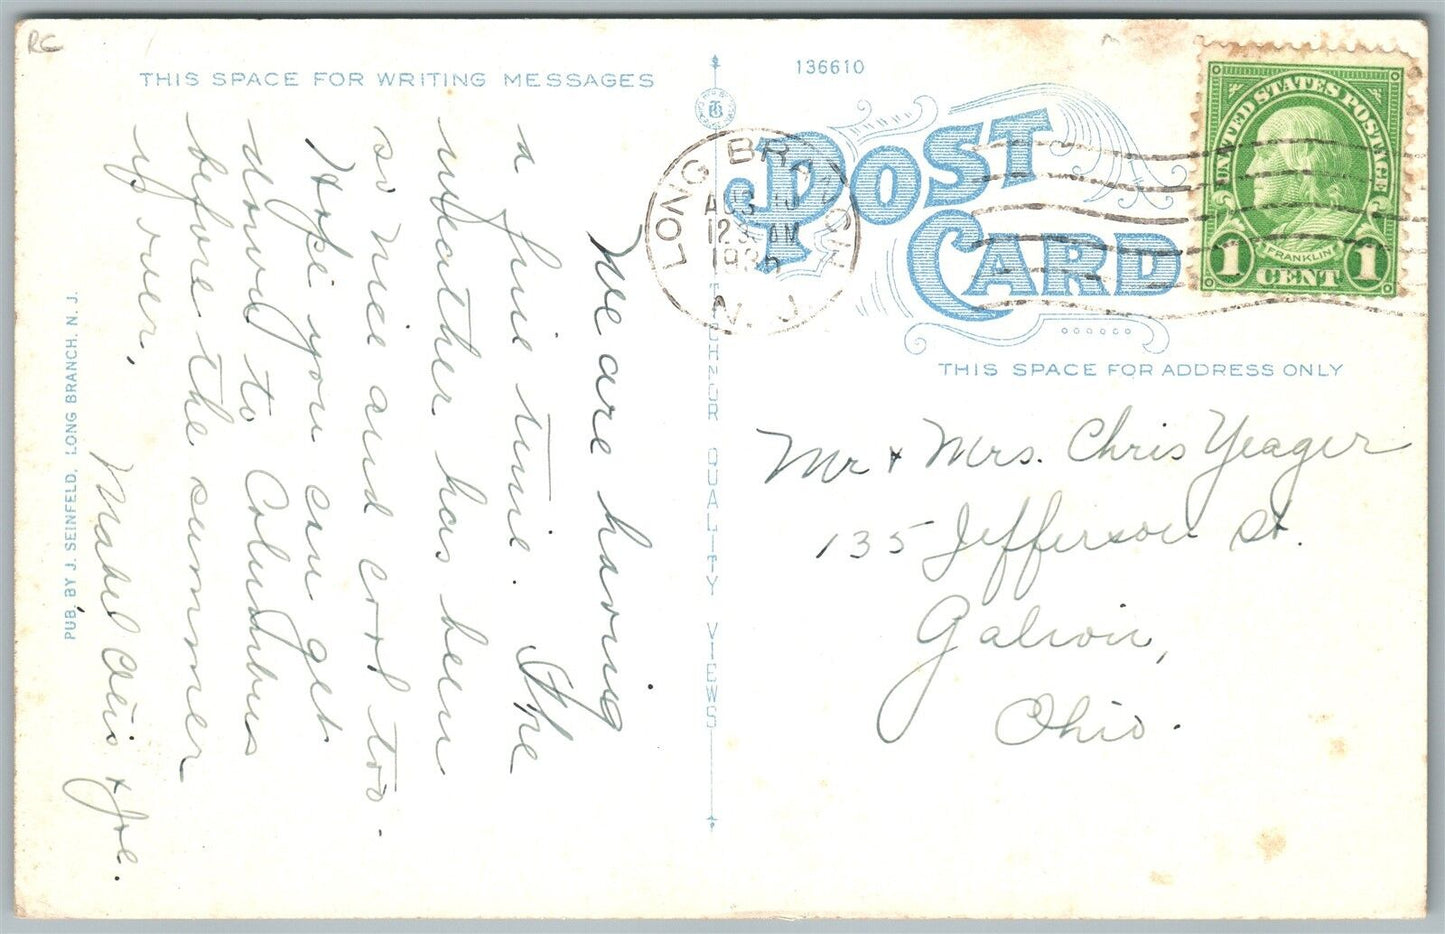 RC
THIS SPACE FOR WRITING MESSAGES
We are having
a fine time. The
weather has been
so nice and cool too.
Hope you can get
down to Columbus
before the summer
is over.
Mabel Otis + Joe.
PUB. BY J. SEINFELD, LONG BRANCH, N. J.
QUALITY VIEWS
136610
POST
CARD
LONG BRANCH
AUG 10
12 30 AM
N. J.
UNITED STATES POSTAGE
FRANKLIN
1 CENT 1
THIS SPACE FOR ADDRESS ONLY
Mr + Mrs. Chris Yeager
135 Jefferson St.
Galion,
Ohio.